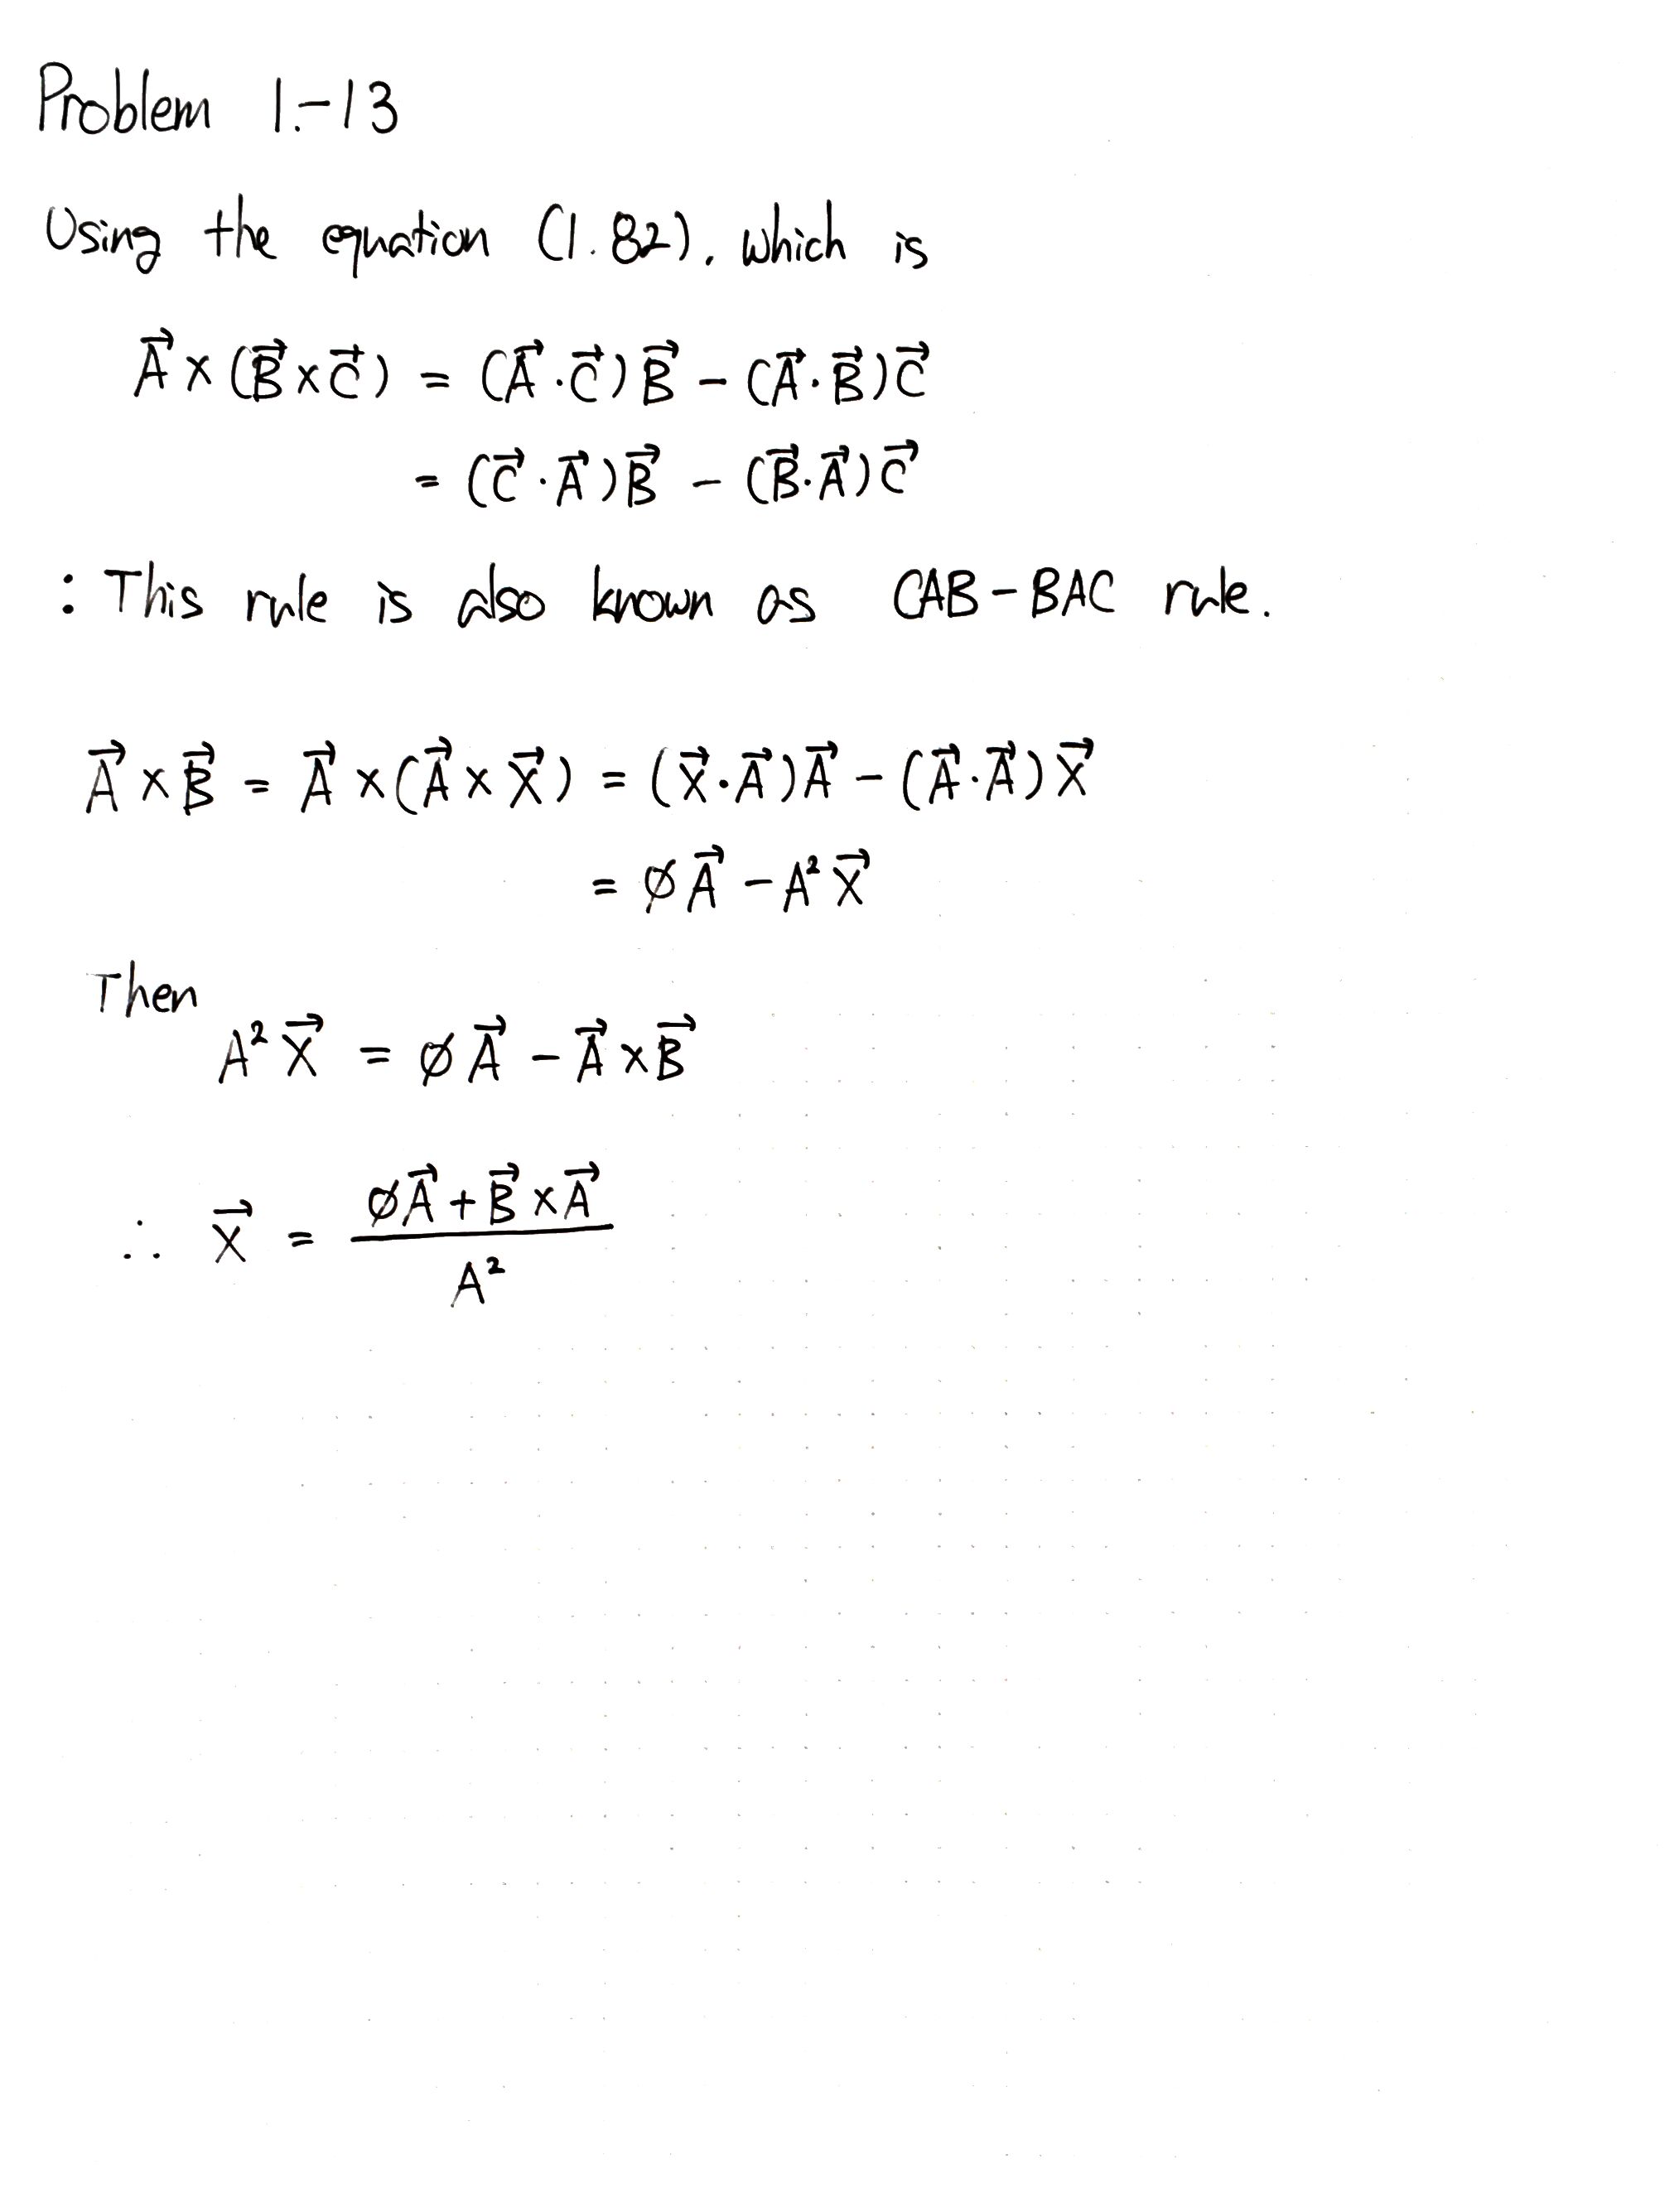 Problem 1.-13
Using the equation (1.82), which is
A⃗ × (B⃗ × C⃗) = (A⃗ · C⃗) B⃗ − (A⃗ · B⃗) C⃗
= (C⃗ · A⃗) B⃗ − (B⃗ · A⃗) C⃗
: This rule is also known as CAB-BAC rule.
A⃗ × B⃗ = A⃗ × (A⃗ × X⃗) = (X⃗ · A⃗) A⃗ − (A⃗ · A⃗) X⃗
= ∅ A⃗ − A² X⃗
Then
A² X⃗ = ∅ A⃗ − A⃗ × B⃗
∴ X⃗ = ∅ A⃗ + B⃗ × A⃗
A²